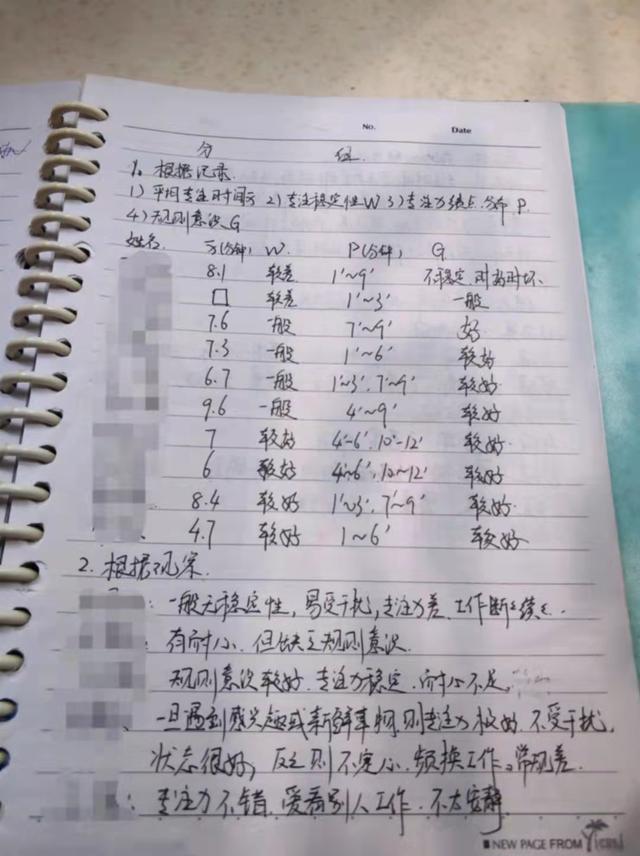 No. Date
分 组
1。根据记录.
1) 平均专注时间 2) 专注稳定性W 3) 专注力绩点.分布.P.
4) 规则意识.G
姓名. (分钟) W. P(分钟) G.
8.1 较差 1'~9' 不稳定.时高时坏.
□ 较差 1'~3' 一般
7.6 一般 7'~9' 好
7.3 一般 1'~6' 较好
6.7 一般 1'~3'.7'~9' 较好
9.6 一般 4'~9' 较好
7 较好 4'-6'.10'-12' 较好.
6 较好 4'~6'.10~12' 较好
8.4 较好 1'~3'.7'~9' 较好
4.7 较好 1~6' 较好
2. 根据观察.
: 一般无稳定性,易受干扰,专注力差.工作断断续续.
有耐心.但缺乏规则意识.
规则意识较好.专注力稳定.耐心不足.
一旦遇到感兴趣或新鲜事物.则专注力极好.不受干扰.
状态很好;反之则不定心.频换工作。常规差.
: 专注力不错.爱看别人工作.不太安静
NEW PAGE FROM